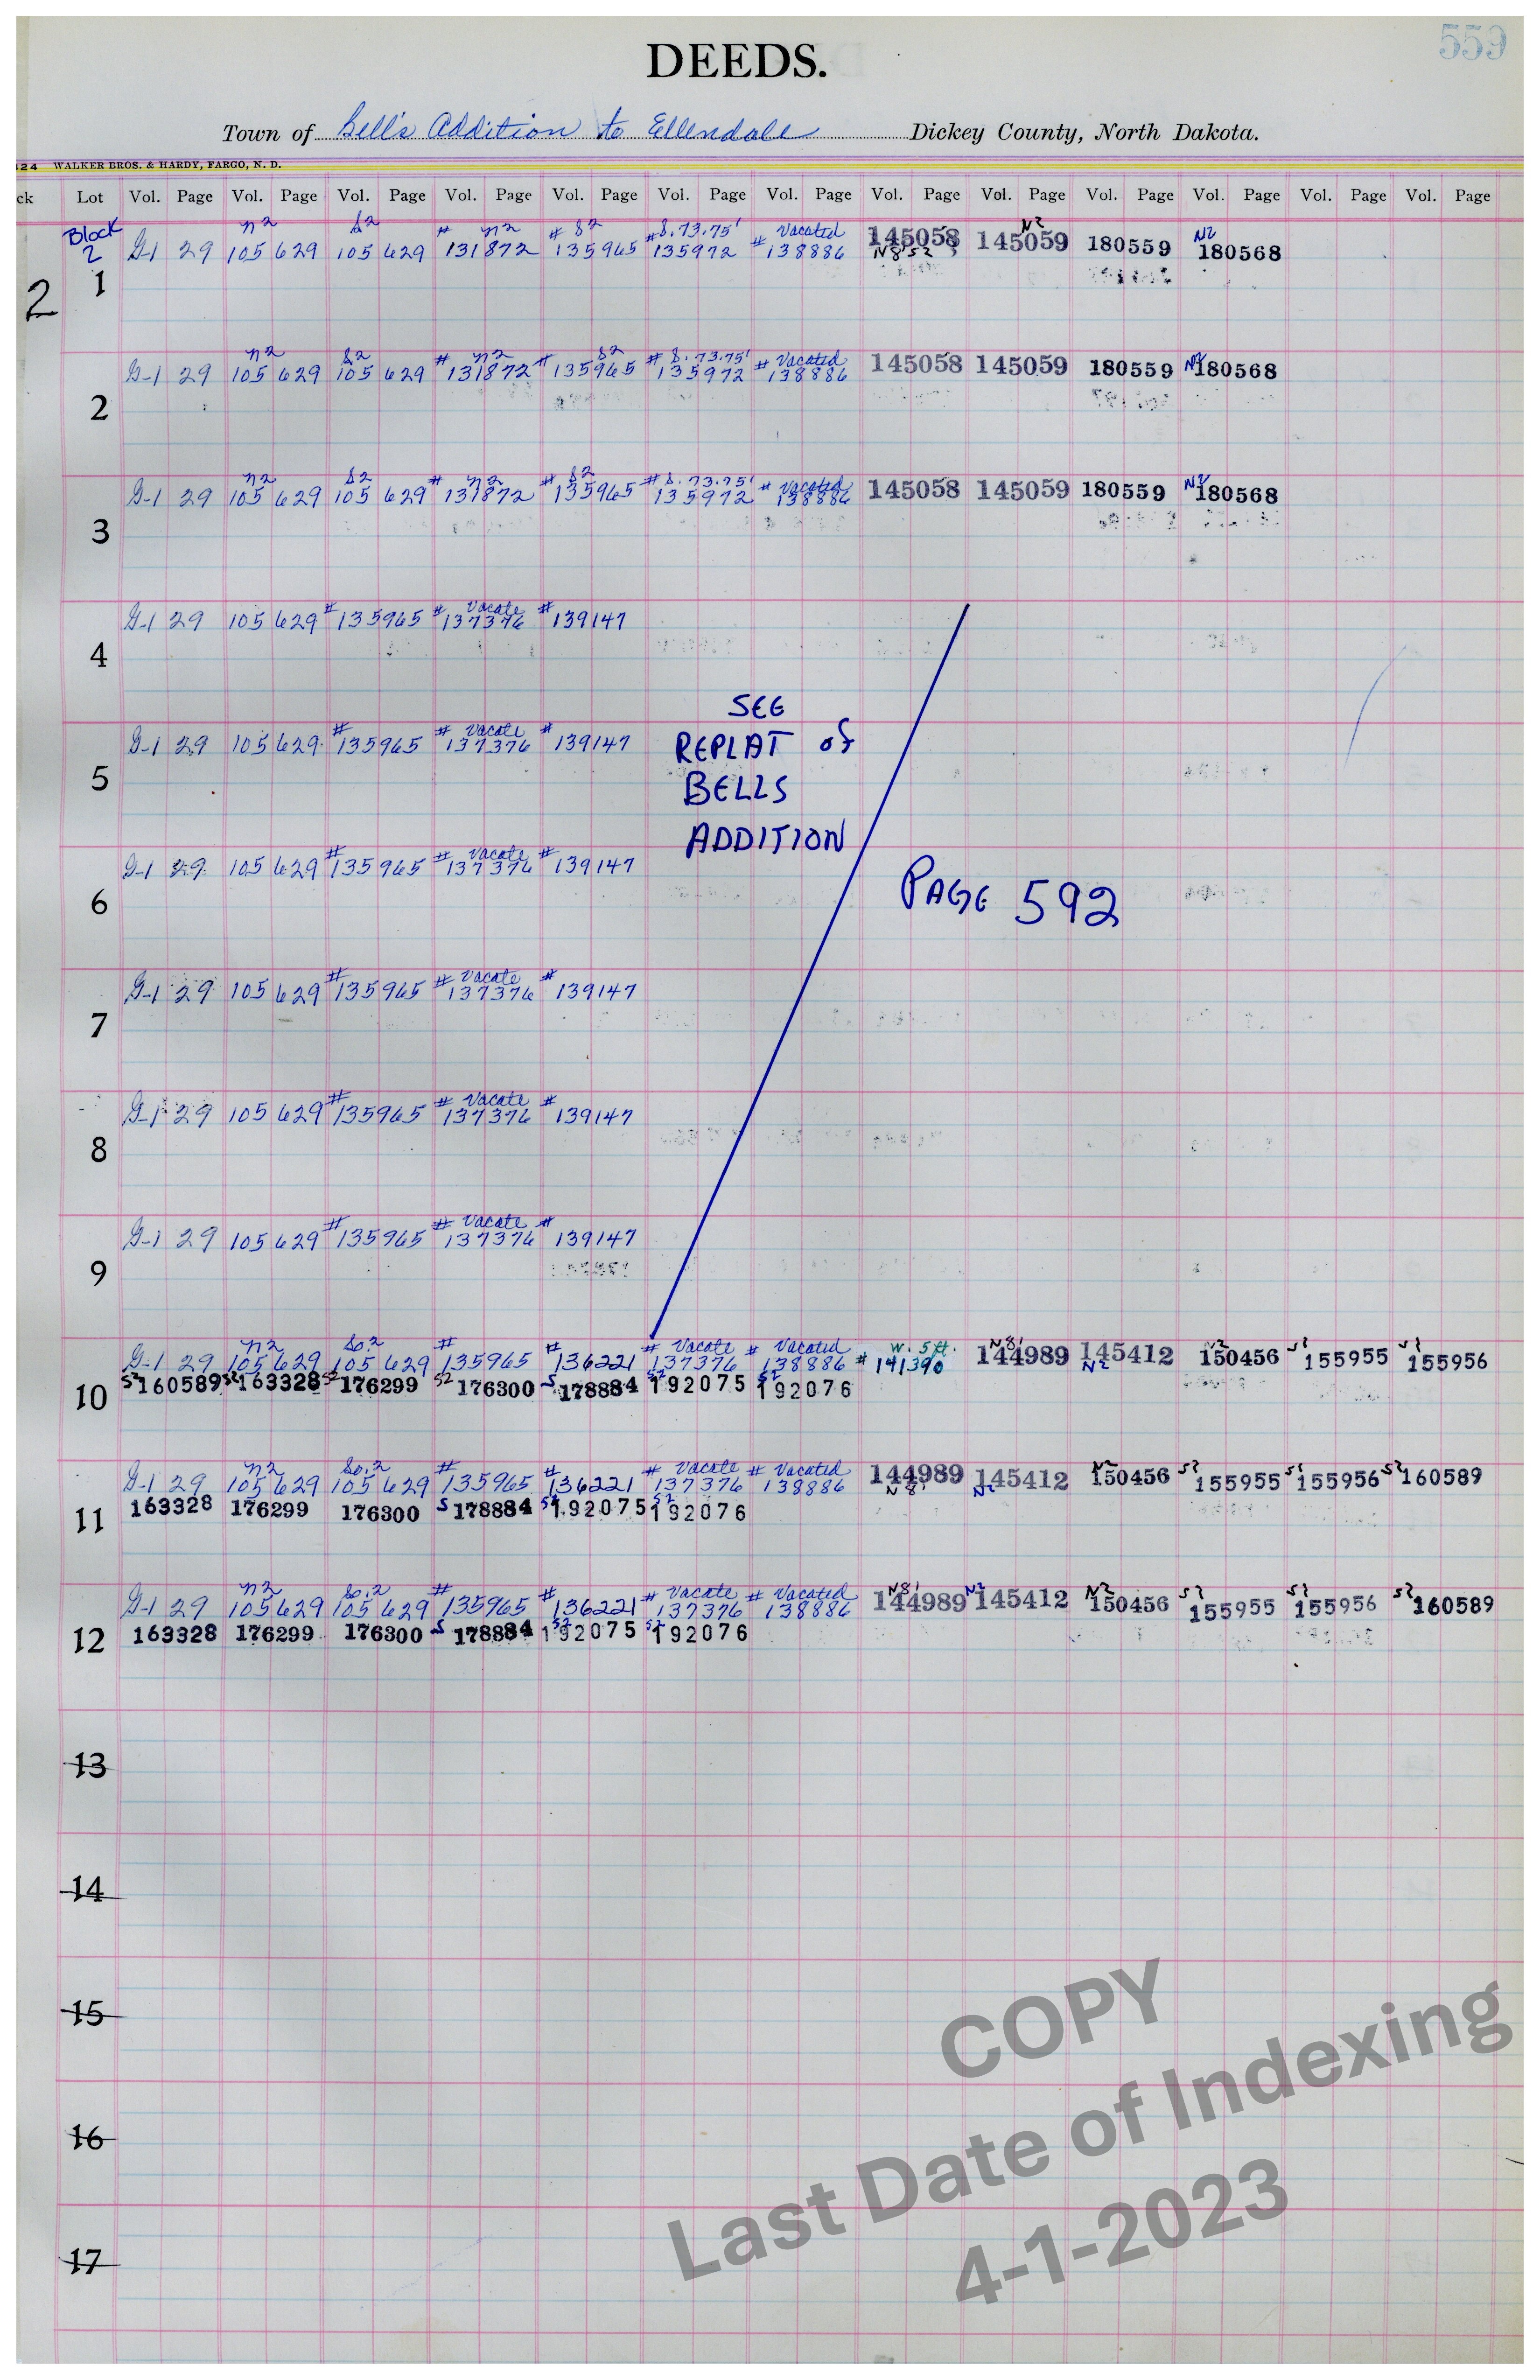 559
DEEDS.
Town of Bell's Addition to Ellendale Dickey County, North Dakota.
124 WALKER BROS. & HARDY, FARGO, N. D.
ck Lot Vol. Page Vol. Page Vol. Page Vol. Page Vol. Page Vol. Page Vol. Page Vol. Page Vol. Page Vol. Page Vol. Page Vol. Page Vol. Page
Block n2 S2 # n2 # S2 #S.73.75' # Vacated 145058 N2 N2
2 G-1 29 105 629 105 629 131872 135965 135972 138886 N8'S2 145059 180559 180568
2 1
n2 S2 # n2 # S2 # S.73.75' # Vacated
G-1 29 105 629 105 629 131872 135965 135972 138886 145058 145059 180559 N2 180568
2
n2 S2 # n2 # S2 # S.73.75' # Vacated
G-1 29 105 629 105 629 131872 135965 135972 138886 145058 145059 180559 N2 180568
3
# # Vacate #
G-1 29 105 629 135965 137376 139147
4
SEE
# # Vacate #
G-1 29 105 629 135965 137376 139147 REPLAT of
5
BELLS
ADDITION
# # Vacate #
G-1 29 105 629 135965 137376 139147
6
PAGE 592
# # Vacate #
G-1 29 105 629 135965 137376 139147
7
# # Vacate #
G-1 29 105 629 135965 137376 139147
8
# # Vacate #
G-1 29 105 629 135965 137376 139147
9
n2 So.2 # # # Vacate # Vacated w. 5 ft. N8' N2 S2 S2
G-1 29 105 629 105 629 135965 136221 137376 138886 # 141390 144989 145412 N2 150456 155955 155956
S2 160589 S2 163328 S2 176299 S2 176300 S 178884 S2 192075 S2 192076
10
n2 So.2 # # # Vacate # Vacated N2 S2 S2 S2
G-1 29 105 629 105 629 135965 136221 137376 138886 144989 N8' N2 145412 150456 155955 155956 160589
163328 176299 176300 S 178884 S2 192075 S2 192076
11
n2 So.2 # # # Vacate # Vacated N8' N2 N2 S2 S2 S2
G-1 29 105 629 105 629 135965 136221 137376 138886 144989 145412 150456 155955 155956 160589
163328 176299 176300 S 178884 S2 192075 S2 192076
12
13
14
15
16
17
COPY
Last Date of Indexing
4-1-2023